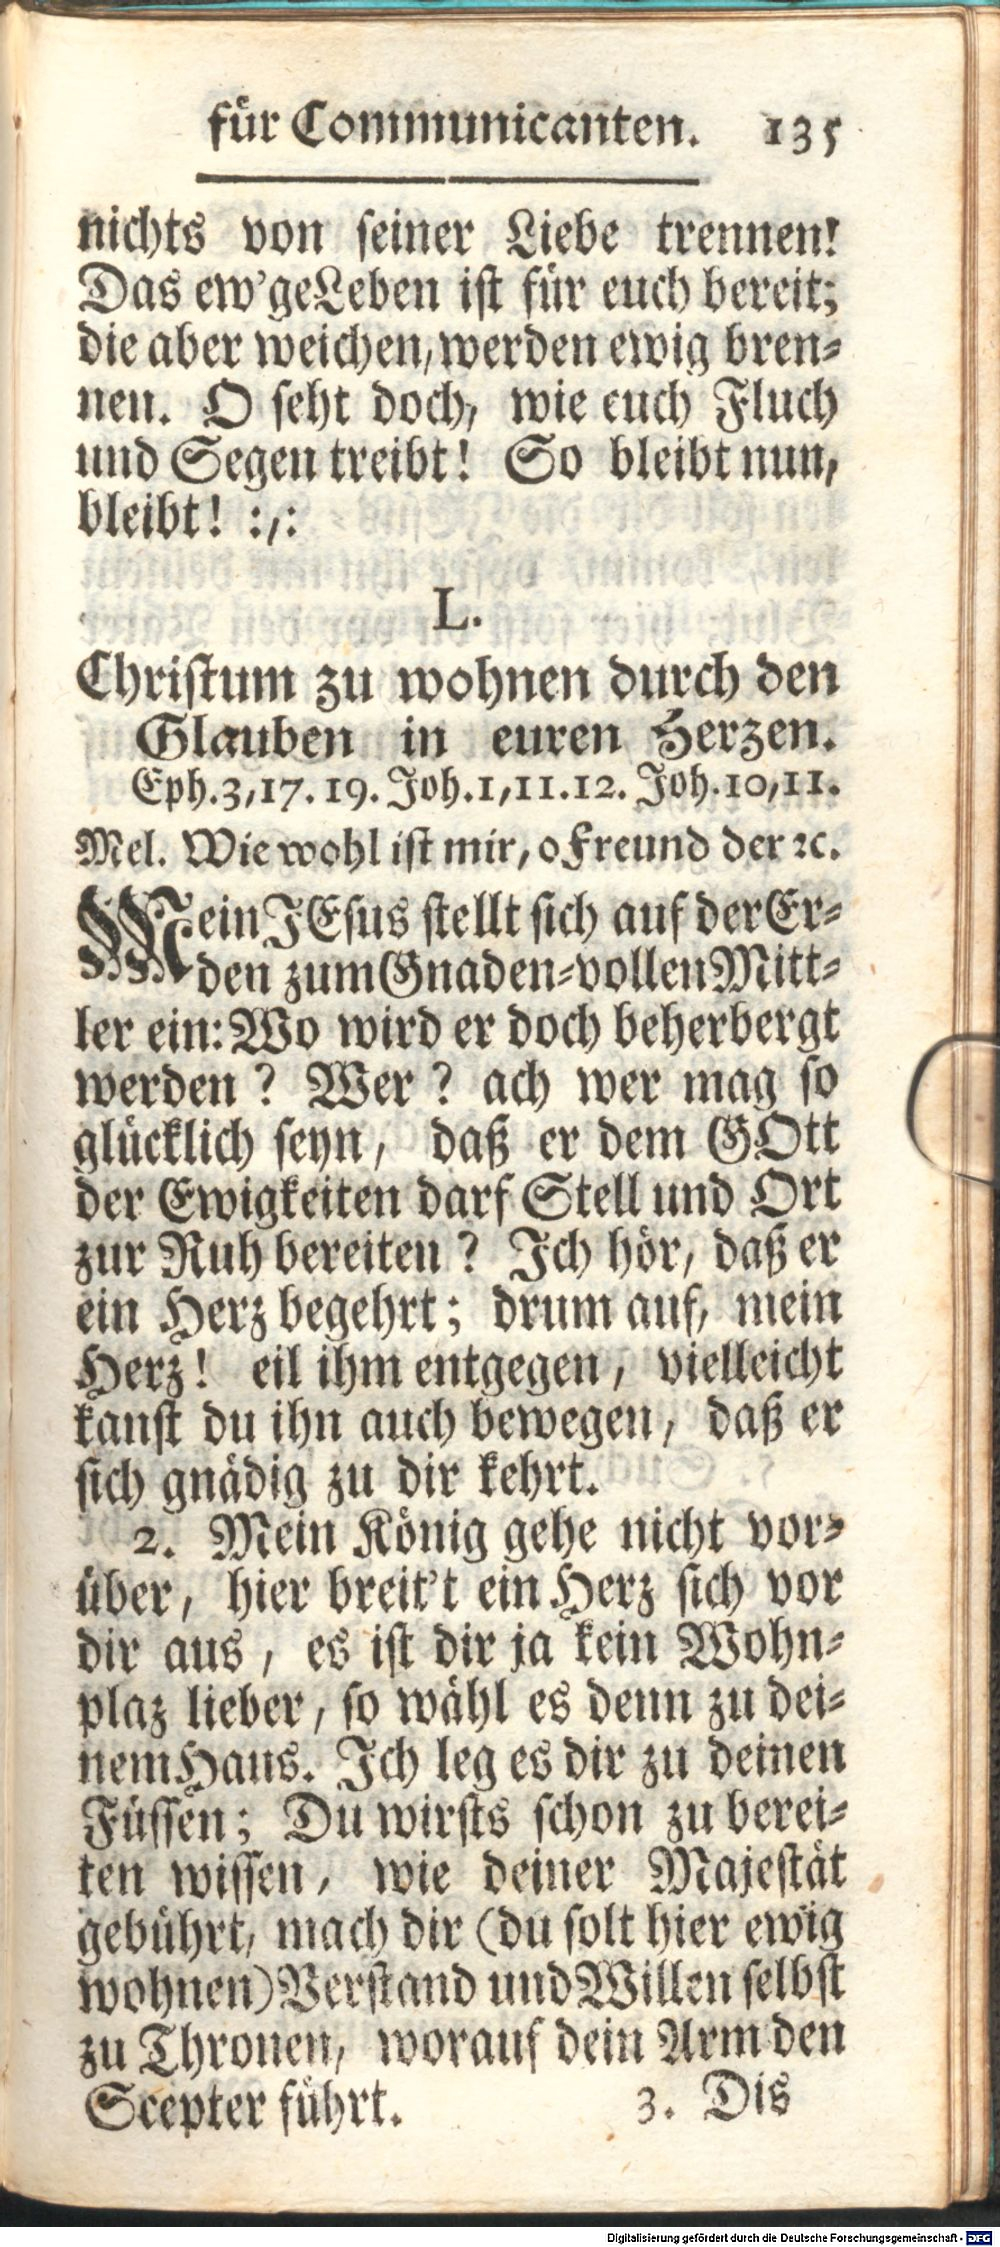 für Communicanten. 135
nichts von seiner Liebe trennen!
Das ew'ge Leben ist für euch bereit;
die aber weichen, werden ewig bren-
nen. O seht doch, wie euch Fluch
und Segen treibt! So bleibt nun,
bleibt! :,:
L.
Christum zu wohnen durch den
Glauben in euren Herzen.
Eph. 3, 17. 19. Joh. 1, 11. 12. Joh. 10, 11.
Mel. Wie wohl ist mir, o Freund der ꝛc.
Mein JEsus stellt sich auf der Er-
den zum Gnaden-vollen Mitt-
ler ein: Wo wird er doch beherbergt
werden? Wer? ach wer mag so
glücklich seyn, daß er dem GOtt
der Ewigkeiten darf Stell und Ort
zur Ruh bereiten? Ich hör, daß er
ein Herz begehrt; drum auf, mein
Herz! eil ihm entgegen, vielleicht
kanst du ihn auch bewegen, daß er
sich gnädig zu dir kehrt.
2. Mein König gehe nicht vor-
über, hier breit't ein Herz sich vor
dir aus, es ist dir ja kein Wohn-
plaz lieber, so wähl es denn zu dei-
nem Haus. Ich leg es dir zu deinen
Füssen; Du wirsts schon zu berei-
ten wissen, wie deiner Majestät
gebührt, mach dir (du solt hier ewig
wohnen) Verstand und Willen selbst
zu Thronen, worauf dein Arm den
Scepter führt. 3. Dis
Digitalisierung gefördert durch die Deutsche Forschungsgemeinschaft - DFG